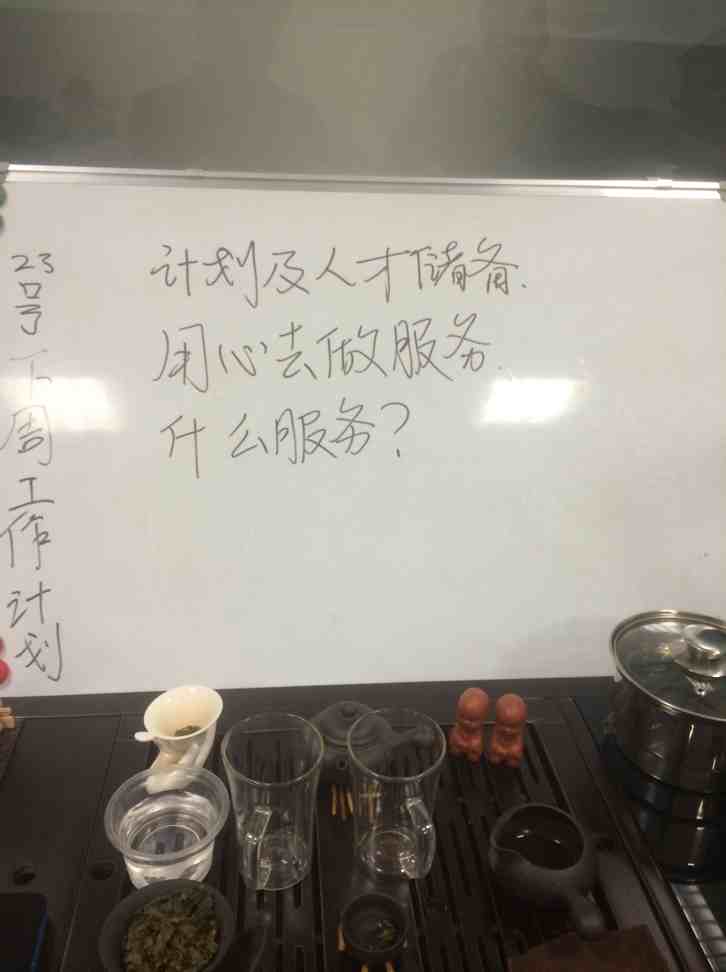 计划及人才储备.
用心去做服务.
什么服务?
23号下周工作计划